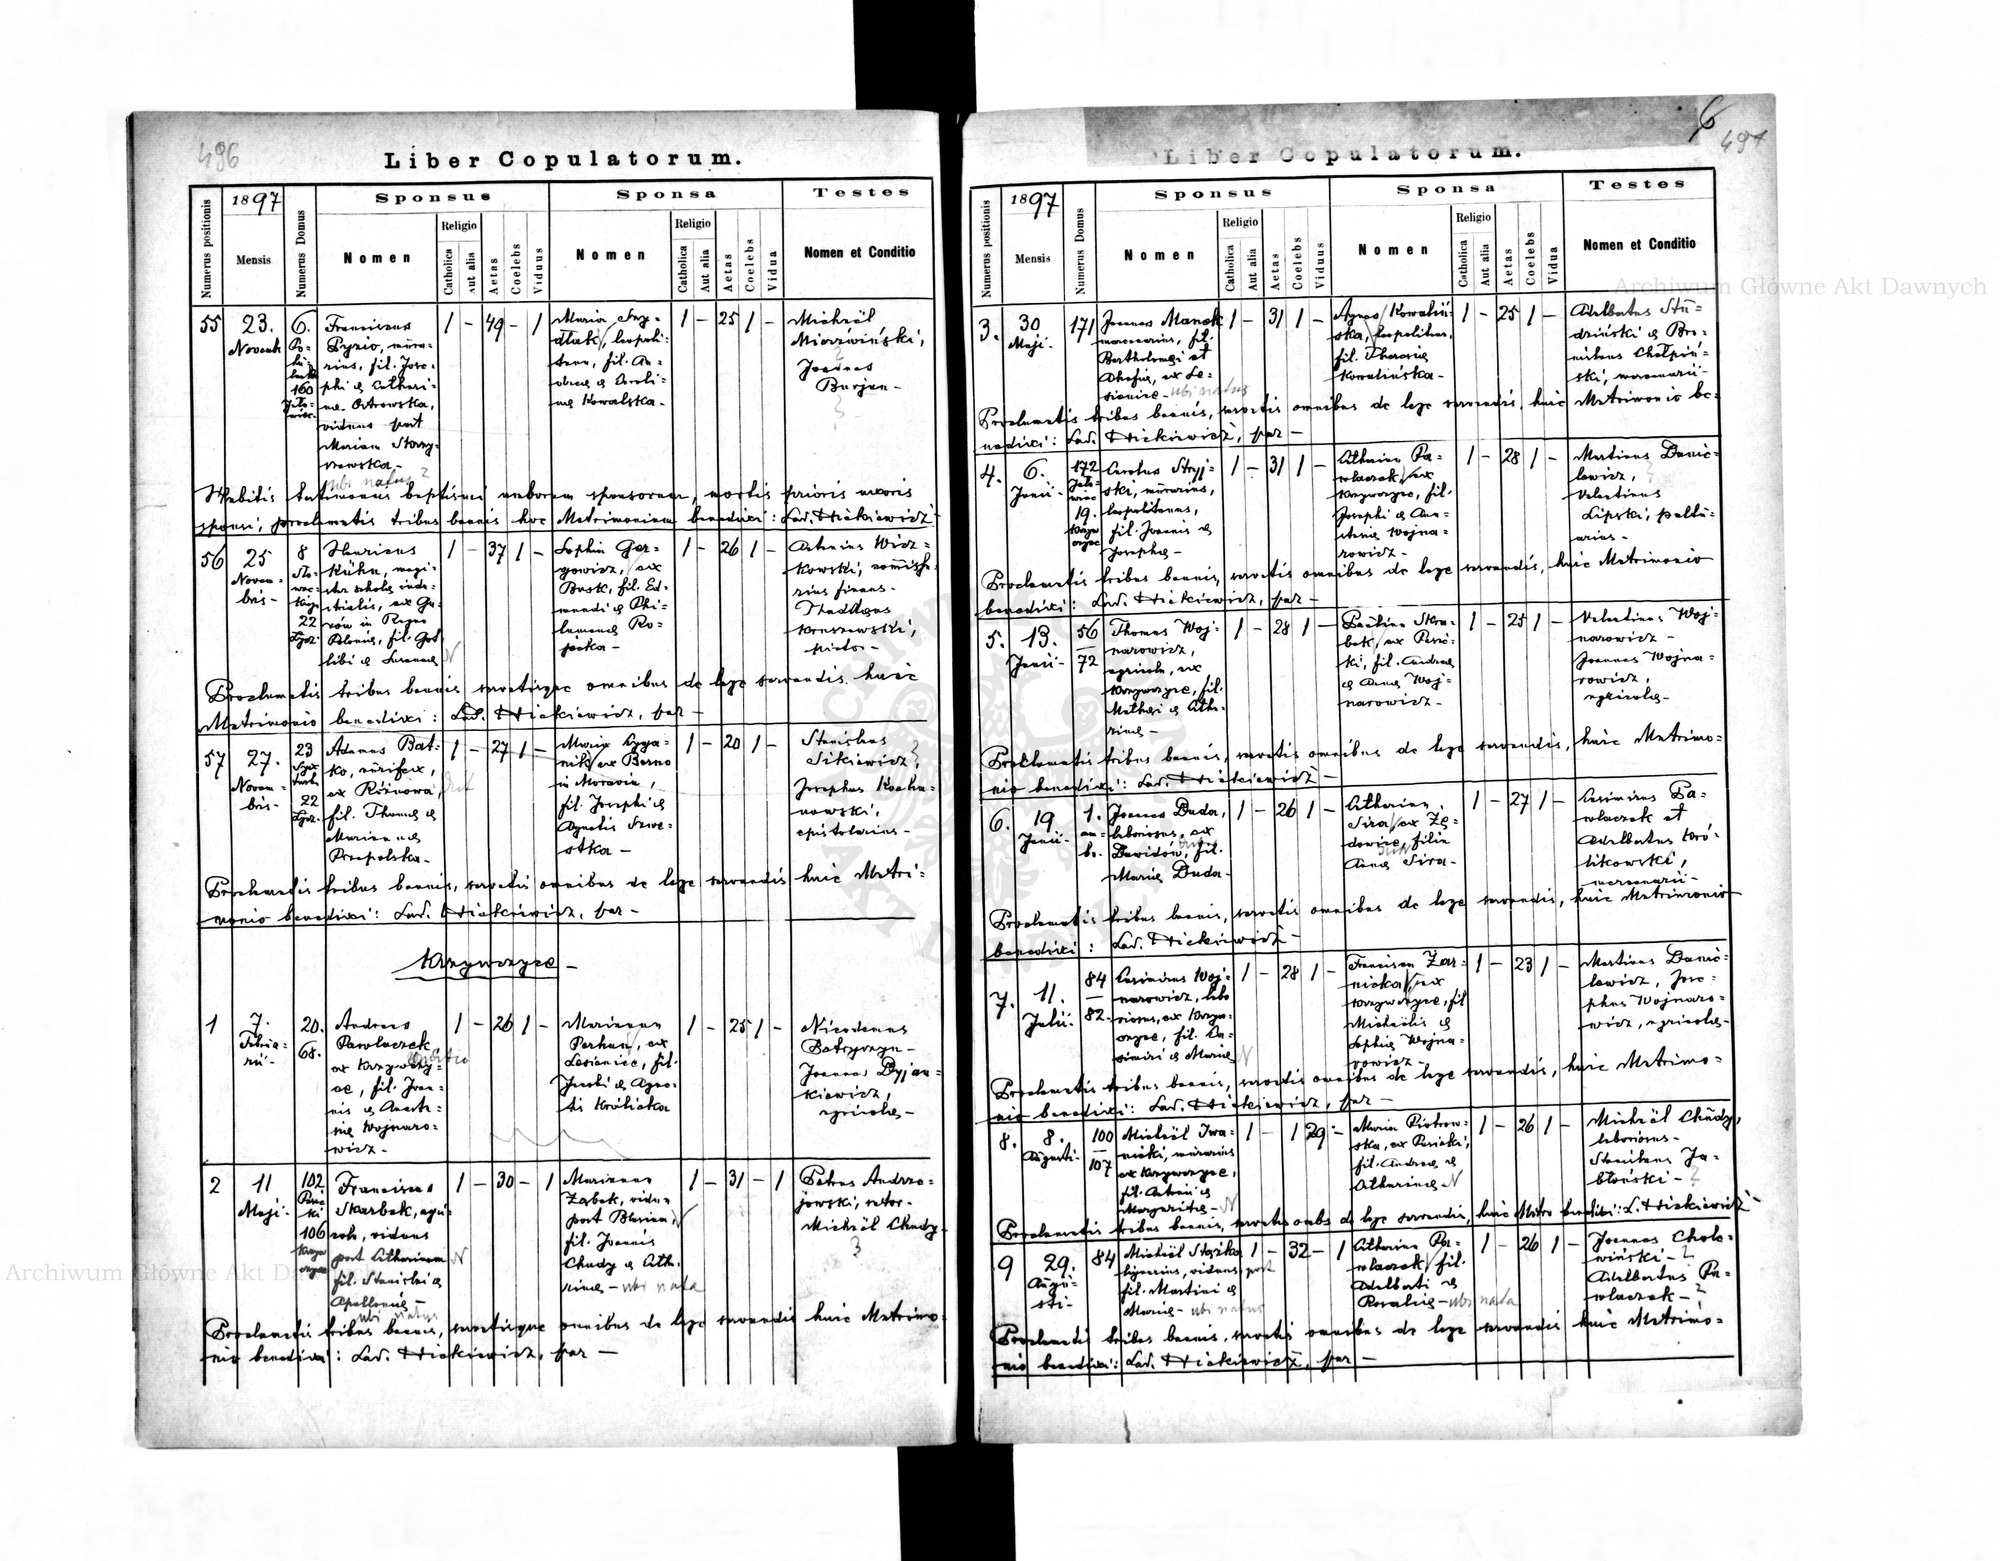 486
Liber Copulatorum.
Numerus positionis
1897
Mensis
Numerus Domus
Sponsus
Nomen
Religio
Catholica
Aut alia
Aetas
Coelebs
Viduus
Sponsa
Nomen
Religio
Catholica
Aut alia
Aetas
Coelebs
Vidua
Testes
Nomen et Conditio
55
23.
Novemb
6.
160
Franciscus
Pyzio, mūra-
rius, fil. Jose-
phi & Cathari-
nae Ostrowska,
viduus post
Mariam Starzy-
szewska -
ubi natus ?
1 - 49 - 1
Maria Szy-
dłak, leopoli-
tana, fil. An-
dreae & Caroli-
nae Kowalska -
1 - 25 1 -
Michaël
Miarzwiński,
Joannes
Burjan -
Habitis testimoniis baptismi amborum sponsorum, mortis prioris uxoris
sponsi, proclamatis tribus bannis hoc Matrimonium benedixi: Lad. Hickiewicz
56
25
Novem-
bris -
8
22
Henricus
Kühn, magi-
ster scholae indu-
strialis, ex Gu-
zów in Regno
Poloniae, fil. Got-
libi & Susannae
1 - 37 1 -
Sophia Ger-
gowicz, ex
Busk, fil. Ed-
mundi & Phi-
lomenae Ro-
jecka -
1 - 26 1 -
Antonius Wicz-
kowski, commissa-
rius finans.
Thaddaeus
Kruszewski,
pictor -
Proclamatis tribus bannis servatisque omnibus de lege servandis huic
Matrimonio benedixi: Lad. Hickiewicz, par -
57
27.
Novem-
bris -
23
22
Adamus Bat-
ko, aurifex,
ex Róznowa,
fil. Thomae &
Mariannae
Przepolska -
1 - 27 1 -
Maria Cyga-
nik, ex Berno
in Moravia,
fil. Josephi &
Agnetis Szwe-
stka -
1 - 20 1 -
Stanislaus
Sikiewicz,
Josephus Kocha-
nowski,
epistolarius -
Proclamatis tribus bannis, servatis omnibus de lege servandis huic Matri-
monio benedixi: Lad. Hickiewicz, par -
Krzywczyce -
1
7.
Februa-
rii -
20.
68.
Andreas
Pawlaczek
ex Krzywczy-
ce, fil. Joan-
nis & Anasta-
siae Wojnaro-
wicz -
conditio
1 - 26 1 -
Marianna
Perhun, ex
Lesienice, fil.
Jacobi & Agne-
tis Królicka
1 - 25 1 -
Nicodemus
Batryczyn -
Joannes Dyjan-
kiewicz,
agricolae -
2
11
Maji -
102
106
Franciscus
Skarbek, agri-
cola, viduus
post Catharinam
fil. Stanislai &
Apolloniae -
ubi natus
1 - 30 - 1
Marianna
Ząbek, vidua
post Blasium,
fil. Joannis
Chudy & Catha-
rinae - ubi nata
1 - 31 - 1
Petrus Andrzo-
jowski, sutor -
Michaël Chudy -
Proclamatis tribus bannis, servatisque omnibus de lege servandis huic Matrimo-
nio benedixi: Lad. Hickiewicz, par -
6
487
Liber Copulatorum.
Numerus positionis
1897
Mensis
Numerus Domus
Sponsus
Nomen
Religio
Catholica
Aut alia
Aetas
Coelebs
Viduus
Sponsa
Nomen
Religio
Catholica
Aut alia
Aetas
Coelebs
Vidua
Testes
Nomen et Conditio
3.
30
Maji -
171
Joannes Manek
mercenarius, fil.
Bartholomaei et
Lesienice - ubi natus
1 - 31 1 -
Agnes Kowaliń-
ska, leopolitana,
fil. Theresiae
Kowalińska -
1 - 25 1 -
Adalbertus Stu-
dziński & Bro-
nislaus Chełpiń-
ski, mercenarii -
Proclamatis tribus bannis, servatis omnibus de lege servandis, huic Matrimonio be-
nedixi: Lad. Hickiewicz, par -
4.
6.
Junii -
172
19.
Carolus Stryj-
ski, mūrarius,
leopolitanus,
fil. Joannis &
Josephae -
1 - 31 1 -
Catharina Pa-
wlaczek, ex
Krzywczyce, fil.
Josephi & Ana-
stasiae Wojna-
rowicz -
1 - 28 1 -
Martinus Danie-
lewicz,
Valentinus
Lipski, pallū-
arius -
Proclamatis tribus bannis, servatis omnibus de lege servandis, huic Matrimonio
benedixi: Lad. Hickiewicz, par -
5.
13.
Junii -
56
72
Thomas Woj-
narowicz,
agricola, ex
Krzywczyce, fil.
Mathaei & Catha-
rinae -
1 - 28 1 -
Paulina Skar-
bek, ex Pasie-
ki, fil. Andreae
& Annae Woj-
narowicz -
1 - 25 1 -
Valentinus Woj-
narowicz -
Joannes Wojna-
rowicz,
agricolae -
Proclamatis tribus bannis, servatis omnibus de lege servandis, huic Matrimo-
nio benedixi: Lad. Hickiewicz -
6.
19
Junii -
1.
am-
bo -
Joannes Duda,
laboriosus, ex
Dawidów, fil.
Mariae Duda -
1 - 26 1 -
Catharina
Sira, ex Ze-
dowice, filia
Annae Sira -
1 - 27 1 -
Casimirus Pa-
wlaczek et
Adalbertus Kró-
likowski,
mercenarii -
Proclamatis tribus bannis, servatis omnibus de lege servandis, huic Matrimonio
benedixi: Lad. Hickiewicz -
7.
11.
Julii -
84
82 -
Casimirus Woj-
narowicz, labo-
riosus, ex Krzyw-
czyce, fil. Ca-
simiri & Mariae
1 - 28 1 -
Francisca Żar-
nicka, ex
Krzywczyce, fil.
Michaëlis &
Sophiae Wojna-
rowicz -
1 - 23 1 -
Martinus Danie-
lewicz, Jose-
phus Wojnaro-
wicz, agricolae -
Proclamatis tribus bannis, servatis omnibus de lege servandis, huic Matrimo-
nio benedixi: Lad. Hickiewicz, par -
8.
8.
Augusti -
100
107
Michaël Iwa-
nicki, mūrarius
ex Krzywczyce,
fil. Antonii &
Margaritae -
1 - 1 29 -
Maria Piotrow-
ska, ex Pasieki,
fil. Andreae &
Catharinae N
1 - 26 1 -
Michaël Chūdy,
laboriosus -
Stanislaus Ja-
błoński -
Proclamatis tribus bannis, servatis ombs de lege servandis, huic Matrio benedixi: L. Hickiewicz
9
29.
Augu-
sti -
84
Michaël Stążka
lignarius, viduus post
fil. Martini &
Mariae - ubi natus
1 - 32 - 1
Catharina Pa-
wlaczek, fil.
Adalberti &
Rosaliae - ubi nata
1 - 26 1 -
Joannes Cholo-
wiński -
Adalbertus Pa-
wlaczek -
Proclamatis tribus bannis, servatis omnibus de lege servandis huic Matrimo-
nio benedixi: Lad. Hickiewicz, par -
Archiwum Główne Akt Dawnych
Archiwum Główne Akt Dawnych